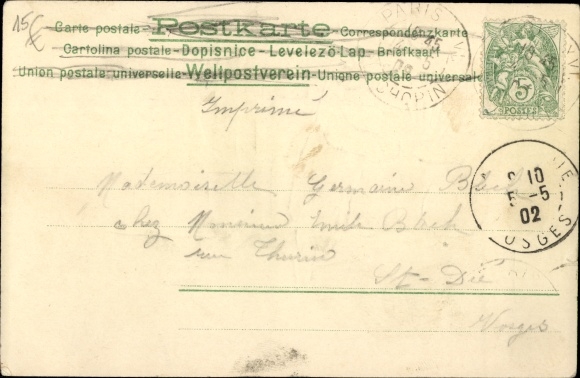 15 €
Carte postale - Postkarte - Correspondenzkarte
Cartolina postale - Dopisnice - Levelező-Lap - Briefkaart
Union postale universelle - Weltpostverein - Unione postale universale
Imprimé
PARIS
5
POSTES
Mademoiselle Germaine Bloch
chez Monsieur Emile Bloch
rue Thurin
St-Dié
Vosges
10
5-5
02
VOSGES